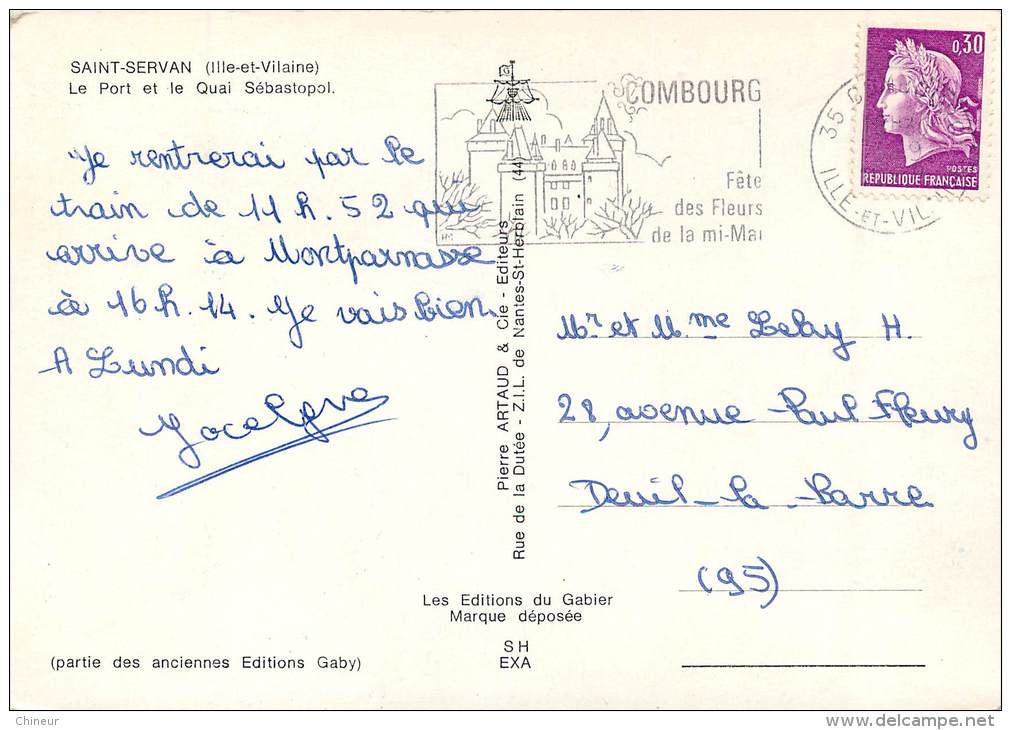 SAINT-SERVAN (Ille-et-Vilaine)
Le Port et le Quai Sébastopol.
Je rentrerai par le
train de 11 h. 52 qui
arrive à Montparnasse
à 16 h. 14. Je vais bien.
A Lundi
Jocelyne
Pierre ARTAUD & Cie - Editeurs
Rue de la Dutée - Z.I.L. de Nantes-St-Herblain (44)
COMBOURG
Fête
des Fleurs
de la mi-Mai
HM
35
ILLE-ET-VIL
0,30
POSTES
REPUBLIQUE FRANÇAISE
Mr et Mme Lebay H.
28, avenue Paul Fleury
Deuil-la-Barre
(95)
Les Editions du Gabier
Marque déposée
SH
EXA
(partie des anciennes Editions Gaby)
Chineur
delcampe.net